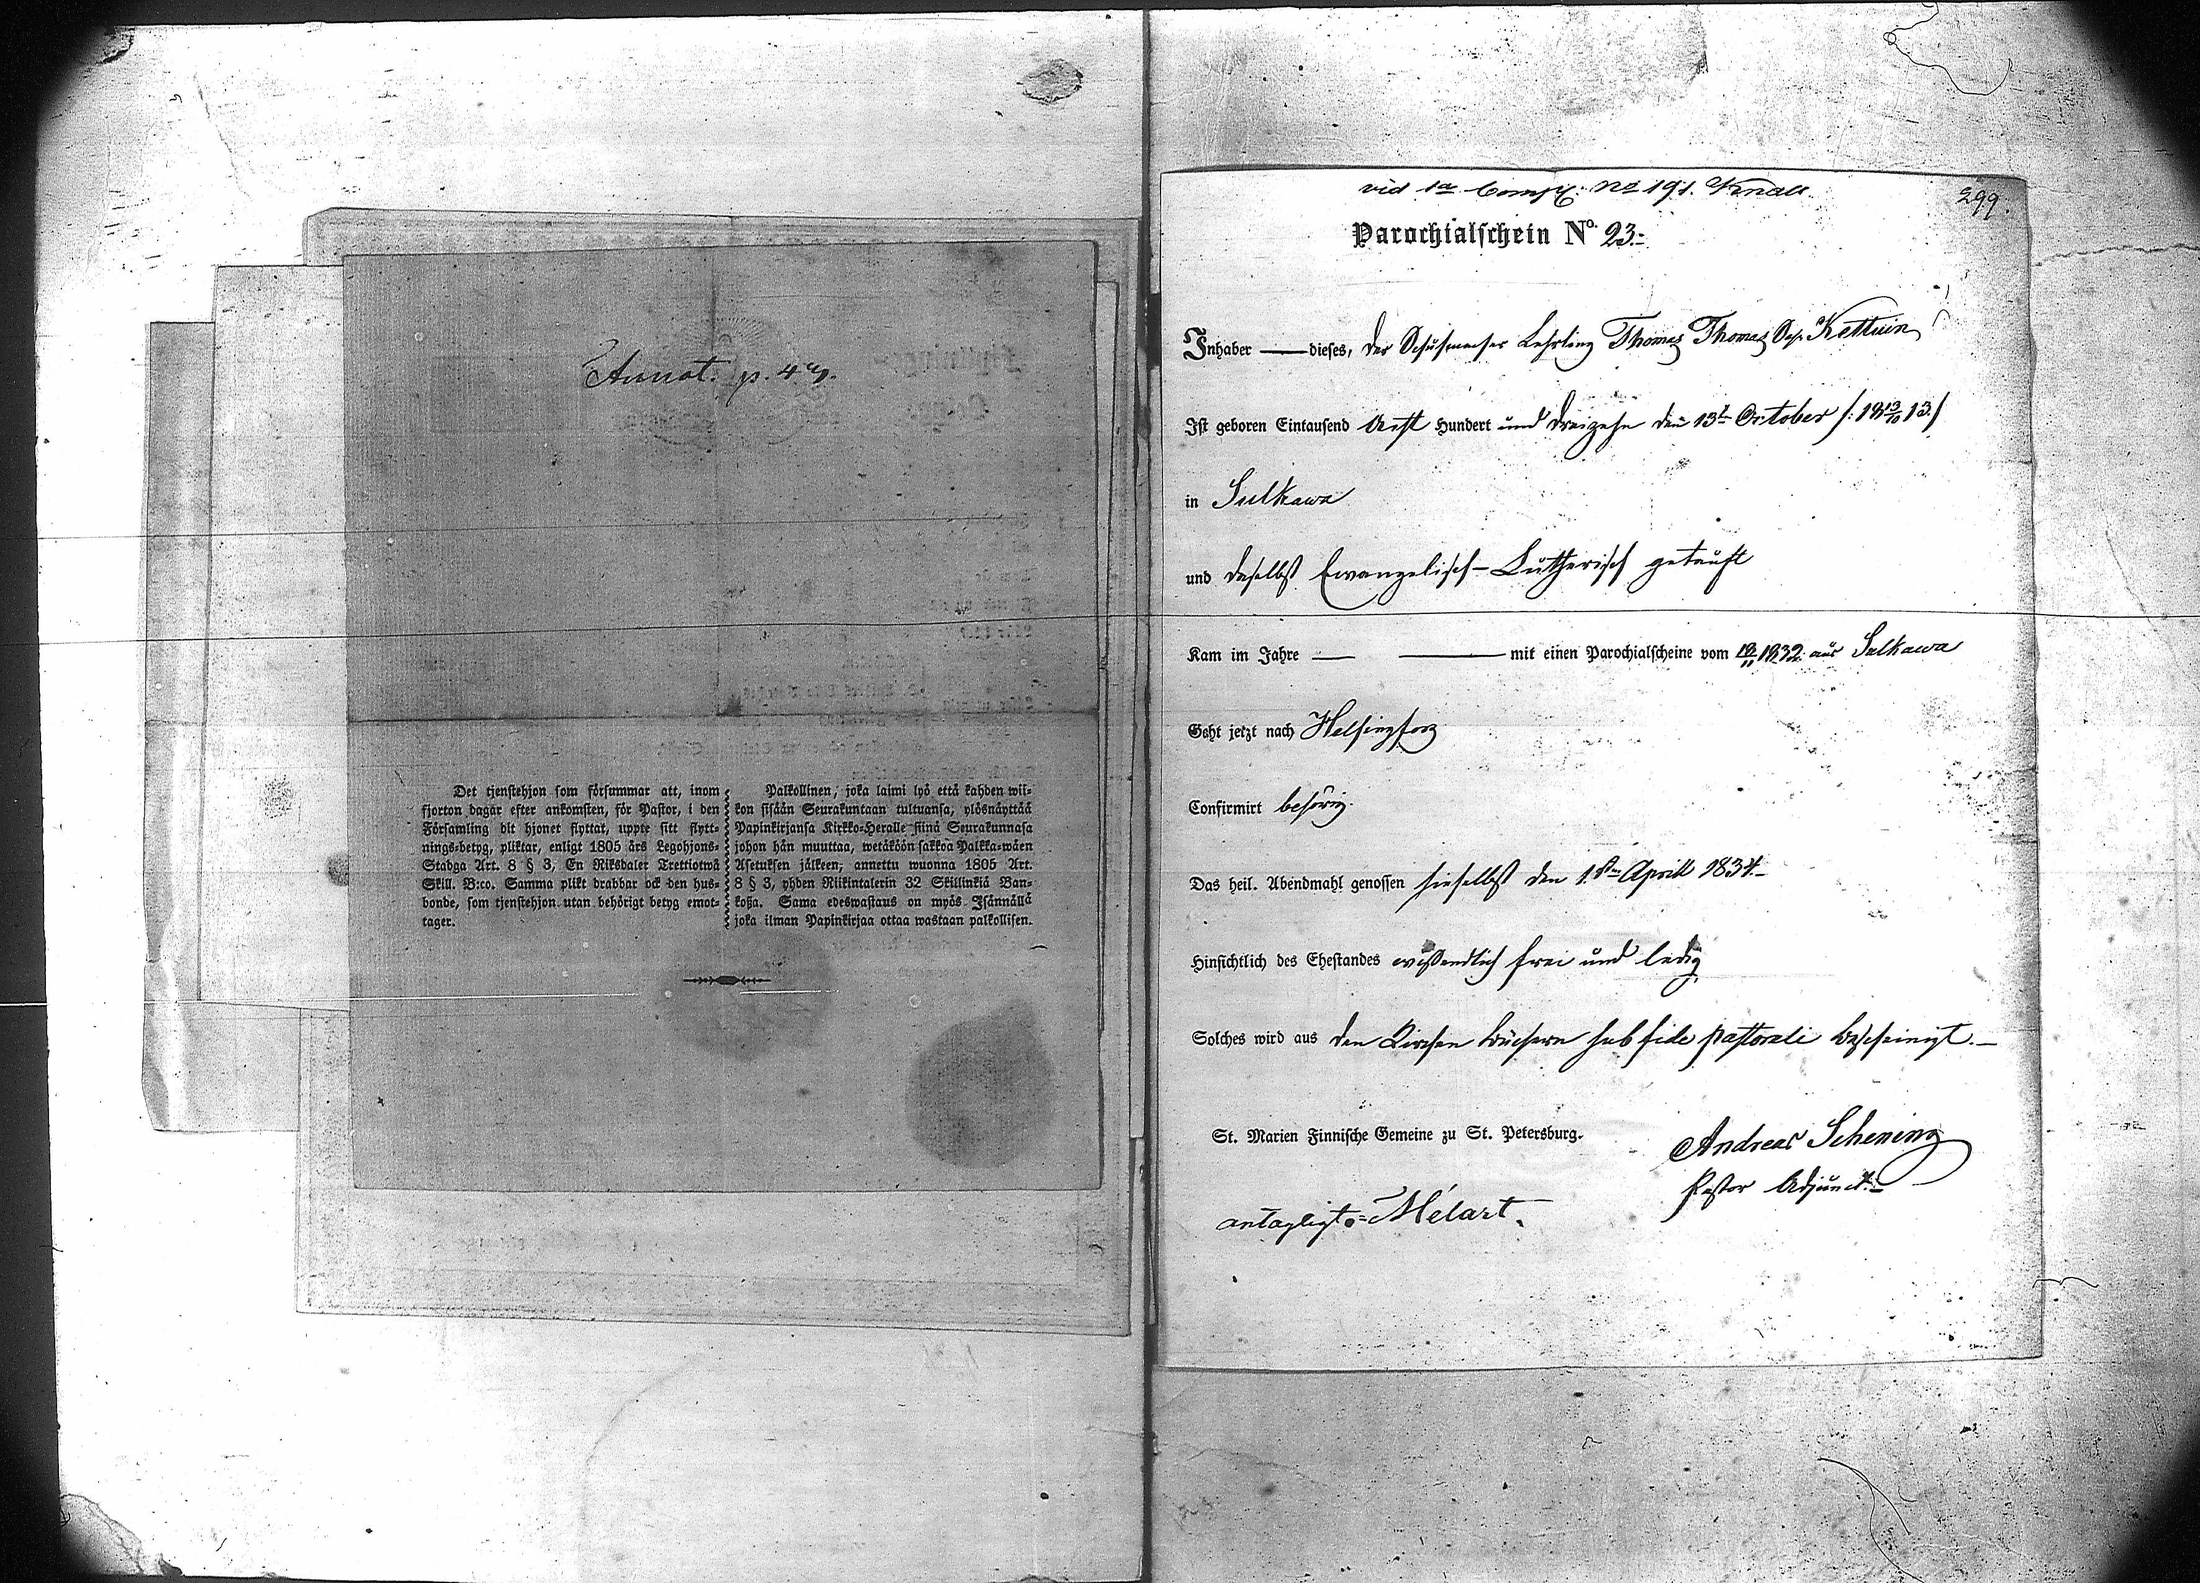 Annot. p.
Det tjenstehjon som försummar att, inom
fjorton dagar efter ankomsten, för Pastor, i den
Församling dit hjonet flyttat, uppte sitt flytt-
nings-betyg, pliktar, enligt 1805 års Legohjons-
Stadga Art. 8 § 3, En Riksdaler Trettiotwå
Skill. B:co. Samma plikt drabbar ock den hus-
bonde, som tjenstehjon utan behörigt betyg emot-
tager.
Palkollinen, joka laimi lyö että kahden wii-
kon sisään Seurakuntaan tultuansa, ylösnäyttää
Papinkirjansa Kirkko-Heralle siinä Seurakunnasa
johon hän muuttaa, wetäköön sakkoa Palkka-wäen
Asetuksen jälkeen, annettu wuonna 1805 Art.
8 § 3, yhden Riikintalerin 32 Skillinkiä Ban-
koßa. Sama edeswastaus on myös Isännällä
joka ilman Papinkirjaa ottaa wastaan palkollisen.
vid 1a Comp: No 191. Knall
299.
Parochialschein No. 23.-
Inhaber — dieses, der Schuhmacher Lehrling Thomas Thomas Kettuin
Ist geboren Eintausend Acht Hundert und dreizehn den 13t October /: 18 13/10 13 :/
in Sulkawa
und daselbst Ewangelisch-Lutherisch getauft
Kam im Jahre — — mit einen Parochialscheine vom 1832 aus Sulkawa
Geht jetzt nach Helsingfors
Confirmirt behörig.
Das heil. Abendmahl genossen hieselbst den 1.sten Aprill 1834.-
Hinsichtlich des Ehestandes wißendlich frei und ledig
Solches wird aus den Kirchen büchern sub fide pastorali bescheinigt.-
St. Marien Finnische Gemeine zu St. Petersburg.
Andreas Schening
Pastor Adjunct.-
Melart.